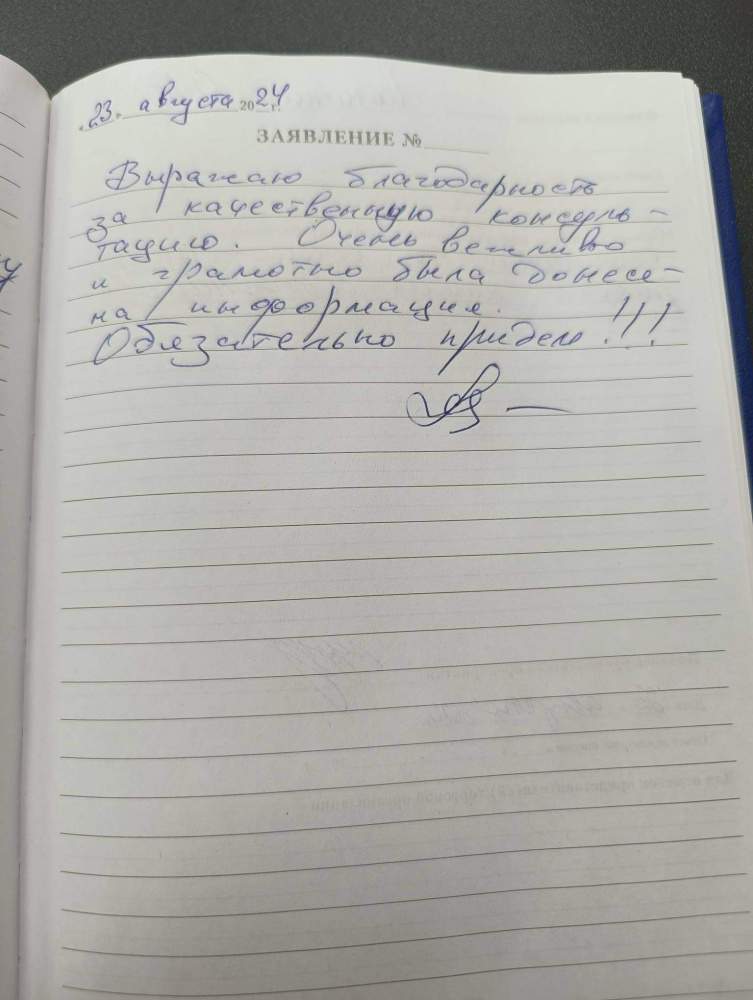 «23» августа 2024 г.
ЗАЯВЛЕНИЕ №
Выражаю благодарность
за качественную консуль-
тацию. Очень вежливо
и грамотно была донесе-
на информация.
Обязательно придем!!!